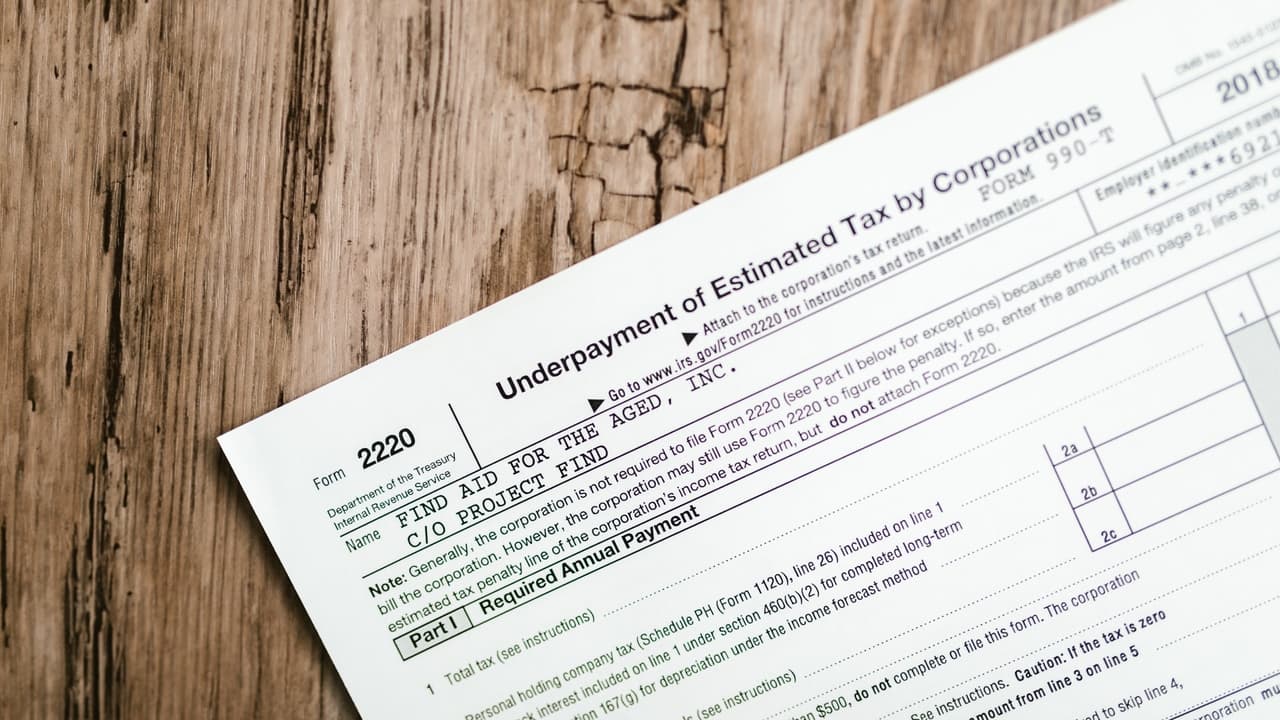 OMB No. 1545-012
2018
Form 2220
Underpayment of Estimated Tax by Corporations
FORM 990-T
Department of the Treasury
Internal Revenue Service
▶ Attach to the corporation's tax return.
▶ Go to www.irs.gov/Form2220 for instructions and the latest information.
Name
FIND AID FOR THE AGED, INC.
C/O PROJECT FIND
Employer identification numb
**-***6921
Note: Generally, the corporation is not required to file Form 2220 (see Part II below for exceptions) because the IRS will figure any penalty o
bill the corporation. However, the corporation may still use Form 2220 to figure the penalty. If so, enter the amount from page 2, line 38, o
estimated tax penalty line of the corporation's income tax return, but do not attach Form 2220.
Part I Required Annual Payment
1 Total tax (see instructions)
1
Personal holding company tax (Schedule PH (Form 1120), line 26) included on line 1
2a
k interest included on line 1 under section 460(b)(2) for completed long-term
2b
tion 167(g) for depreciation under the income forecast method
2c
(see instructions)
than $500, do not complete or file this form. The corporation
See instructions. Caution: If the tax is zero
amount from line 3 on line 5
d to skip line 4,